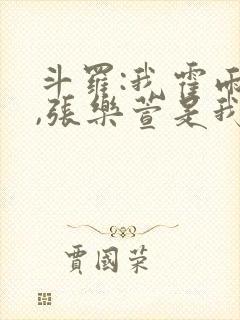 斗羅:我霍雨
,張樂萱是我
賈國榮